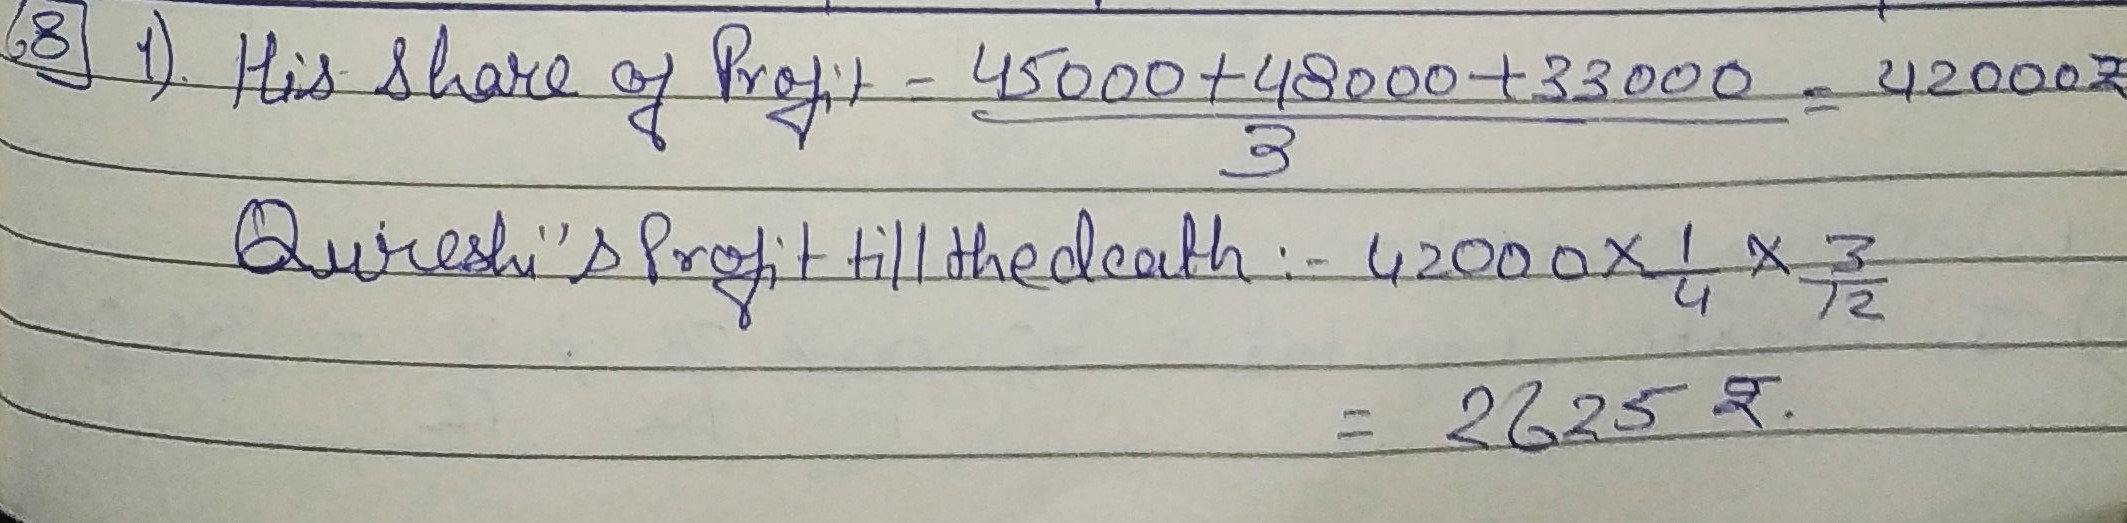 68 1). His Share of Profit = 45000+48000+33000 / 3 = 42000₹
Qureshi"s Profit till the death :- 42000 × 1/4 × 3/12
= 2625 ₹.